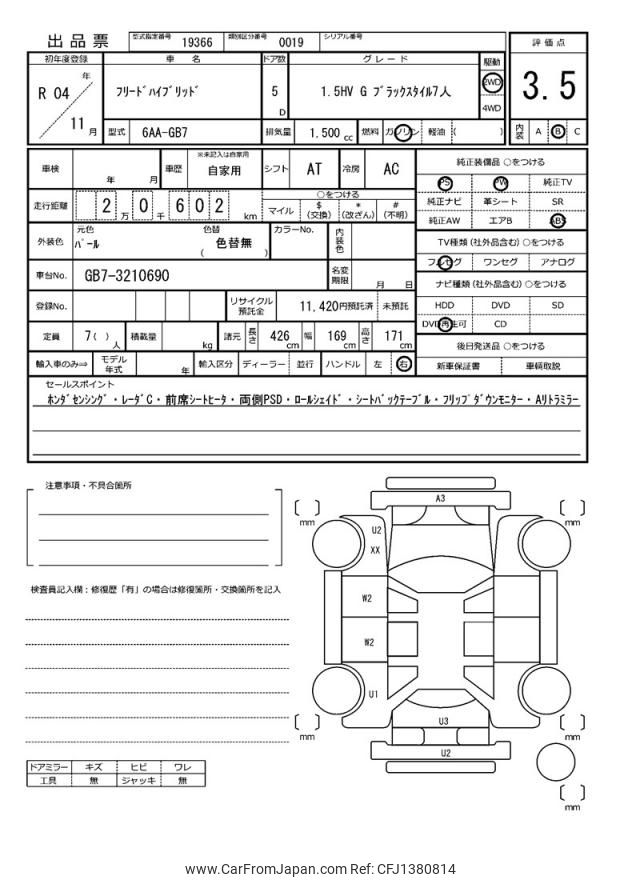 出品票 型式指定番号 19366 類別区分番号 0019 シリアル番号
評価点
3.5
初年度登録 車名 ドア数 グレード 駆動
R 04 年 11 月
フリードハイブリッド 5 D 1.5HV G ブラックスタイル7人 2WD 4WD
型式 6AA-GB7 排気量 1.500 cc 燃料 ガソリン 軽油 ( ) 内装 A B C
車検 年 月 車歴 ※未記入は自家用 自家用 シフト AT 冷房 AC
走行距離 2 万 0 千 6 0 2 km
○をつける
マイル $ (交換) * (改ざん) # (不明)
外装色 元色 パール 色替 ( 色替無 ) カラーNo. 内装色
車台No. GB7-3210690 名変期限 月 日
登録No. リサイクル預託金 11,420円預託済 未預託
定員 7 ( ) 人 積載量 kg 諸元 長さ 426 cm 幅 169 cm 高さ 171 cm
輸入車のみ⇒ モデル年式 年 輸入区分 ディーラー 並行 ハンドル 左 右
純正装備品 ○をつける
PS PW 純正TV
純正ナビ 革シート SR
純正AW エアB ABS
TV種類 (社外品含む) ○をつける
フルセグ ワンセグ アナログ
ナビ種類 (社外品含む) ○をつける
HDD DVD SD
DVD再生可 CD
後日発送品 ○をつける
新車保証書 車輌取説
セールスポイント
ホンダセンシング・レーダC・前席シートヒータ・両側PSD・ロールシェイド・シートバックテーブル・フリップダウンモニター・Aリトラミラー
注意事項・不具合箇所
検査員記入欄：修復歴「有」の場合は修復箇所・交換箇所を記入
ドアミラー キズ ヒビ ワレ
工具 無 ジャッキ 無
A3
mm
mm
U2
XX
W2
W2
U1
U3
U2
mm
mm
mm
www.CarFromJapan.com Ref: CFJ1380814